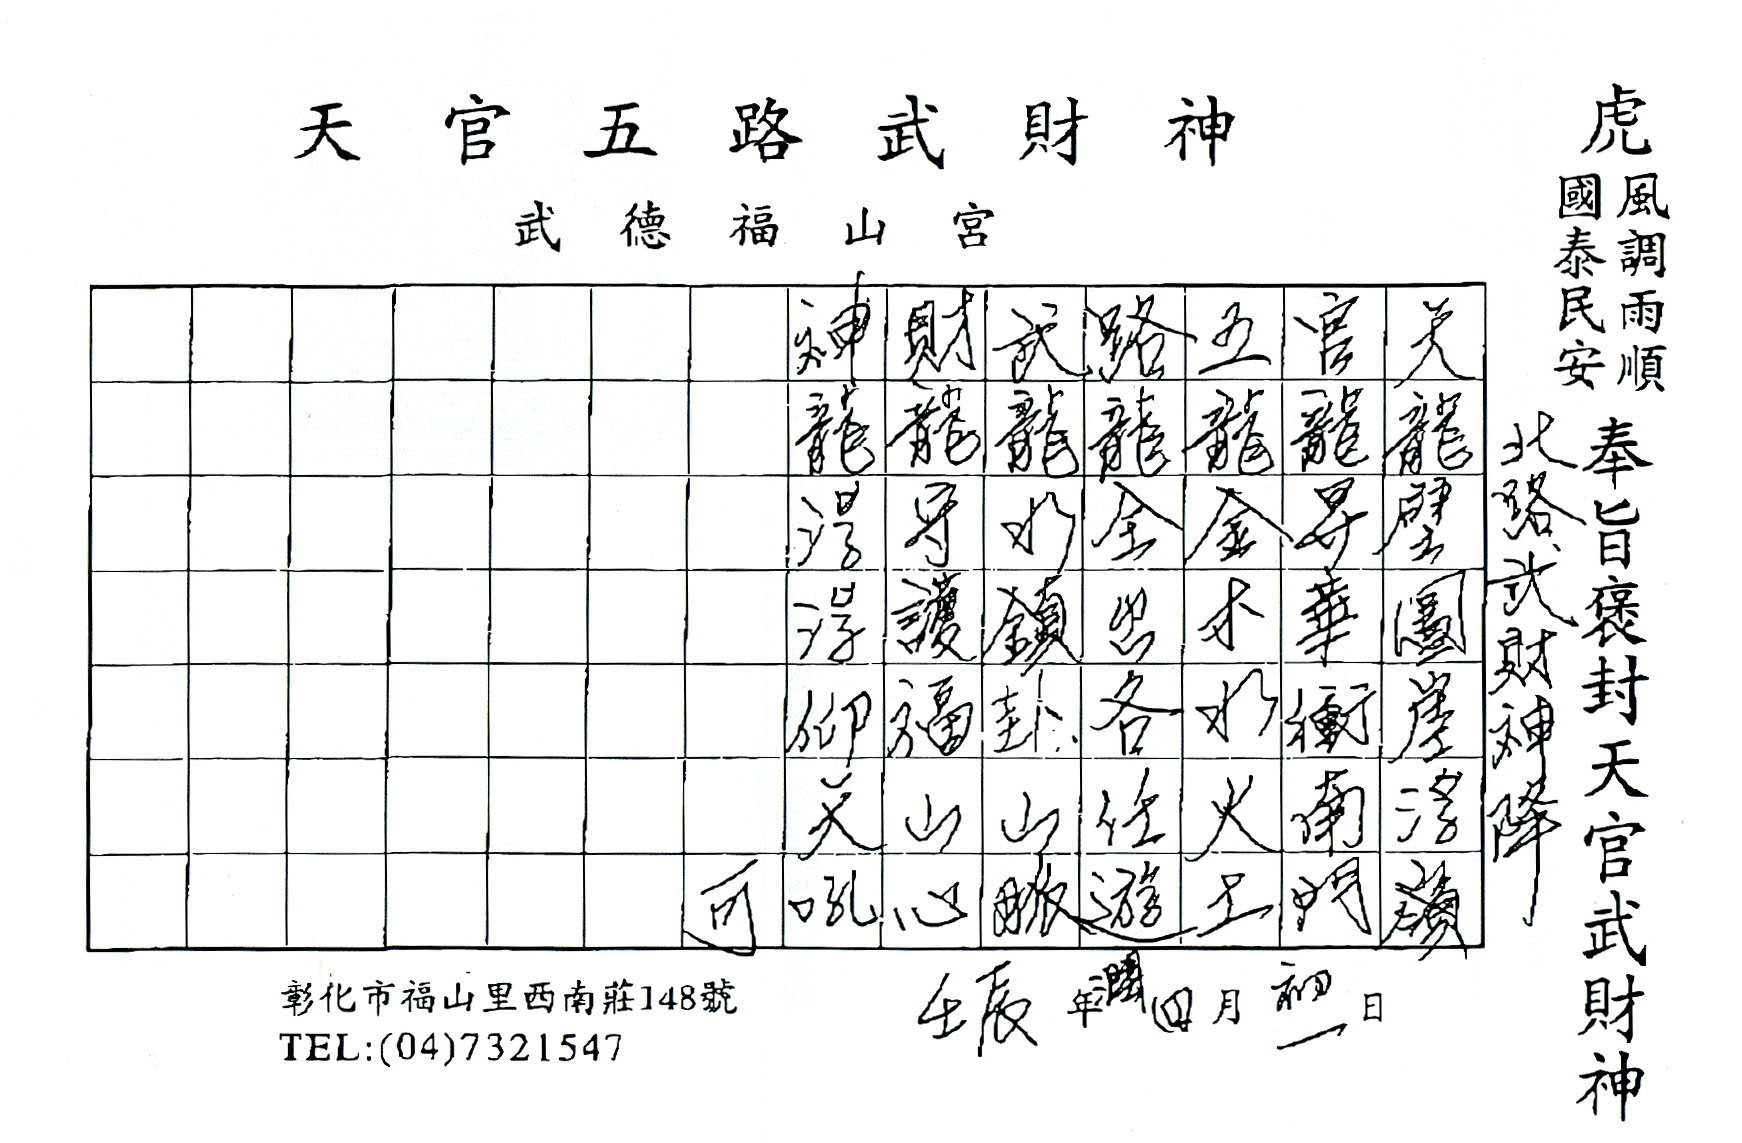 天官五路武財神
武德福山宮
虎
風調雨順
國泰民安
奉旨褒封天官武財神
北路武財神降
天龍壁園崖浮嶺
官龍昇華衡南門
五龍金木水火土
路龍全出各任遊
武龍水鎮卦山脈
財龍守護福山心
神龍浮浮仰天吼
可
壬辰年潤四月初一日
彰化市福山里西南莊148號
TEL:(04)7321547